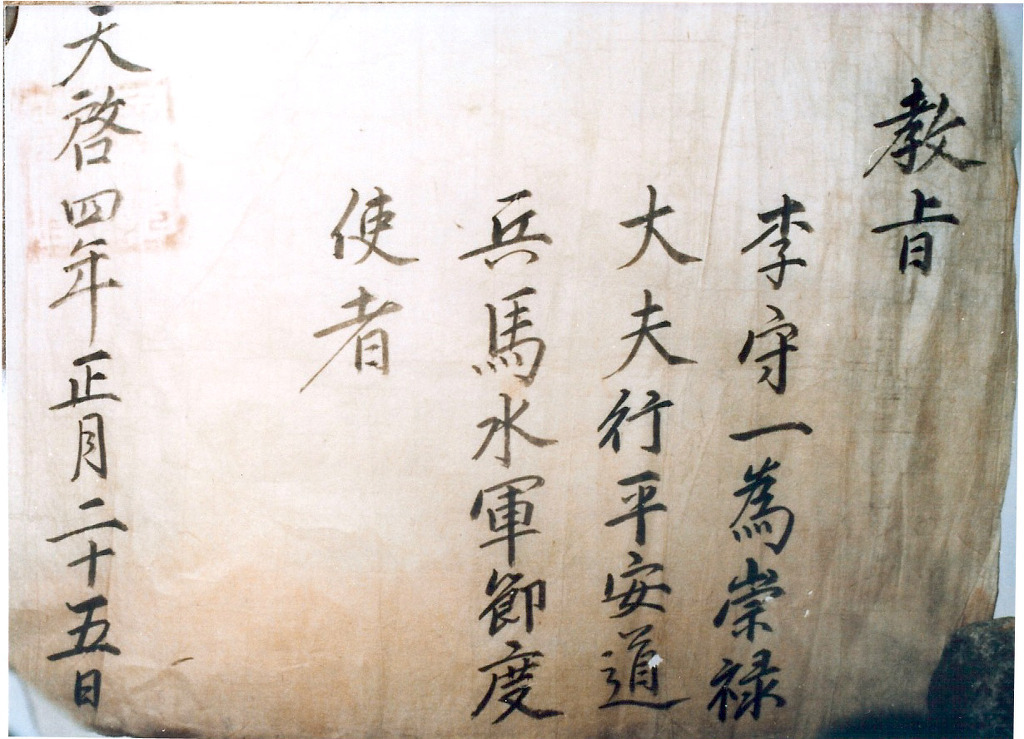 教旨
李守一為崇禄
大夫行平安道
兵馬水軍節度
使者
天啓四年正月二十五日